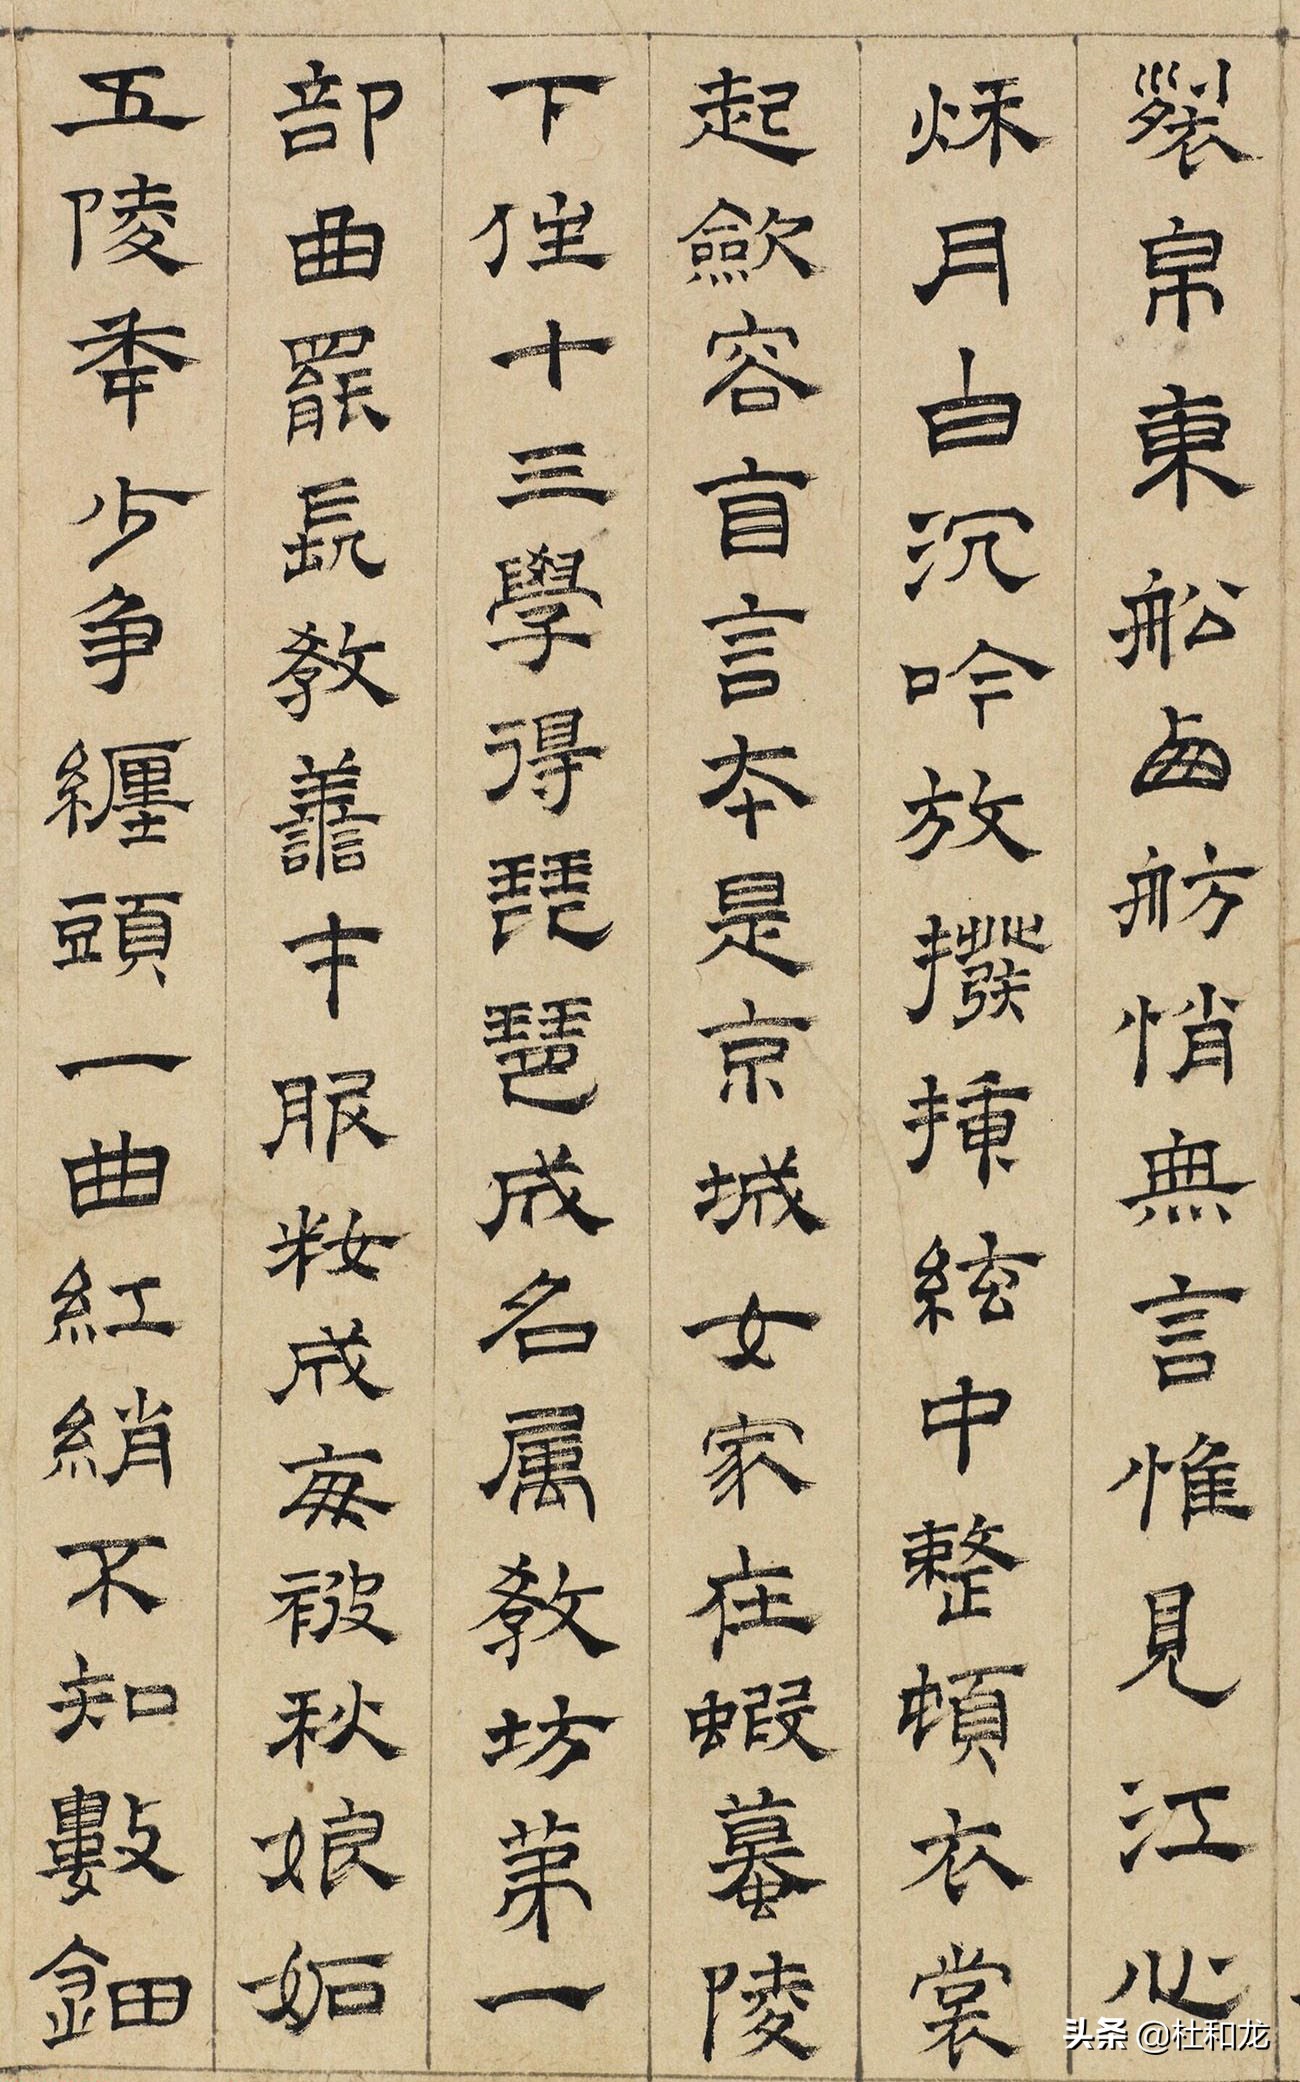 裂帛東船西舫悄無言惟見江心
秌月白沉吟放撥揷絃中整頓衣裳
起斂容自言本是京城女家在蝦蟇陵
下住十三學得琵琶成名属教坊第一
部曲罷長教譱才服粧成每被秋娘妬
五陵年少争纏頭一曲紅綃不知數鈿
头条 @杜和龙